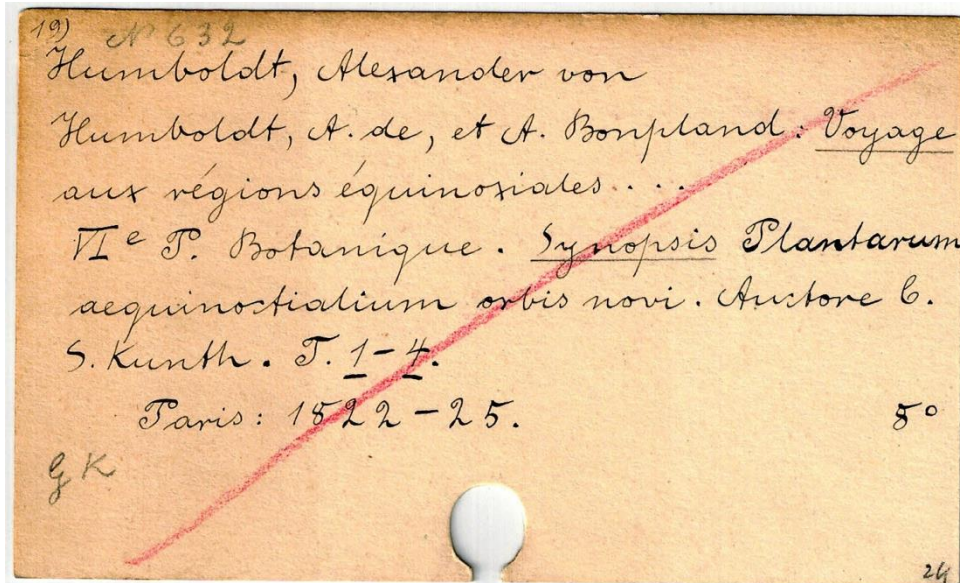 19) N 632
Humboldt, Alexander von
Humboldt, A. de, et A. Bonpland: Voyage
aux régions équinoxiales...
VIe P. Botanique. Synopsis Plantarum
aequinoctialium orbis novi. Auctore C.
S. Kunth. T. 1-4.
Paris: 1822-25. 8°
GK
24